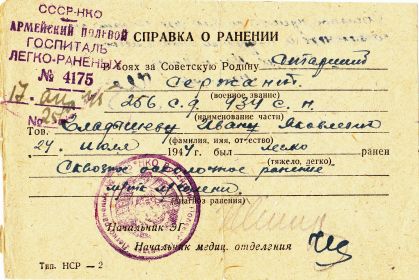 СССР-НКО
АРМЕЙСКИЙ ПОЛЕВОЙ
ГОСПИТАЛЬ
ЛЕГКО-РАНЕНЫХ
№ 4175
17
№
СПРАВКА О РАНЕНИИ
В боях за Советскую Родину старший
сержант
(военное звание)
256 с.д. 934 с. п.
(наименование части)
Тов. Ивану Яковлевичу
(фамилия, имя, отчество)
24 июля 1944 г. был легко ранен
(тяжело, легко)
Сквозное осколочное ранение
(диагноз ранения)
Начальник ЭГ
Начальник медиц. отделения
Тип. НСР — 2